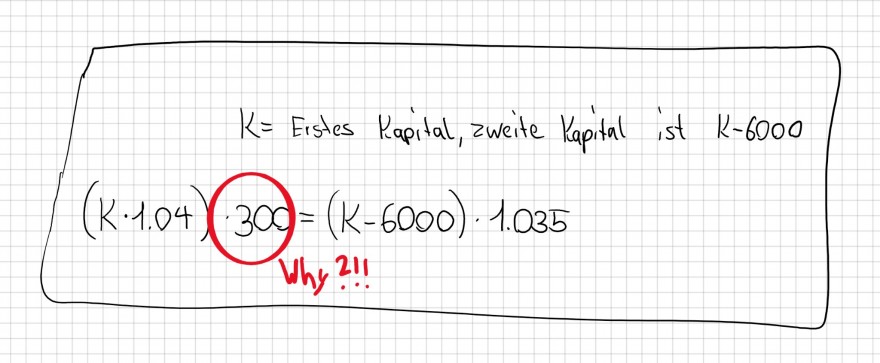 K= Erstes Kapital, zweite Kapital ist K-6000
(K·1.04)·300=(K-6000)·1.035
Why?!!